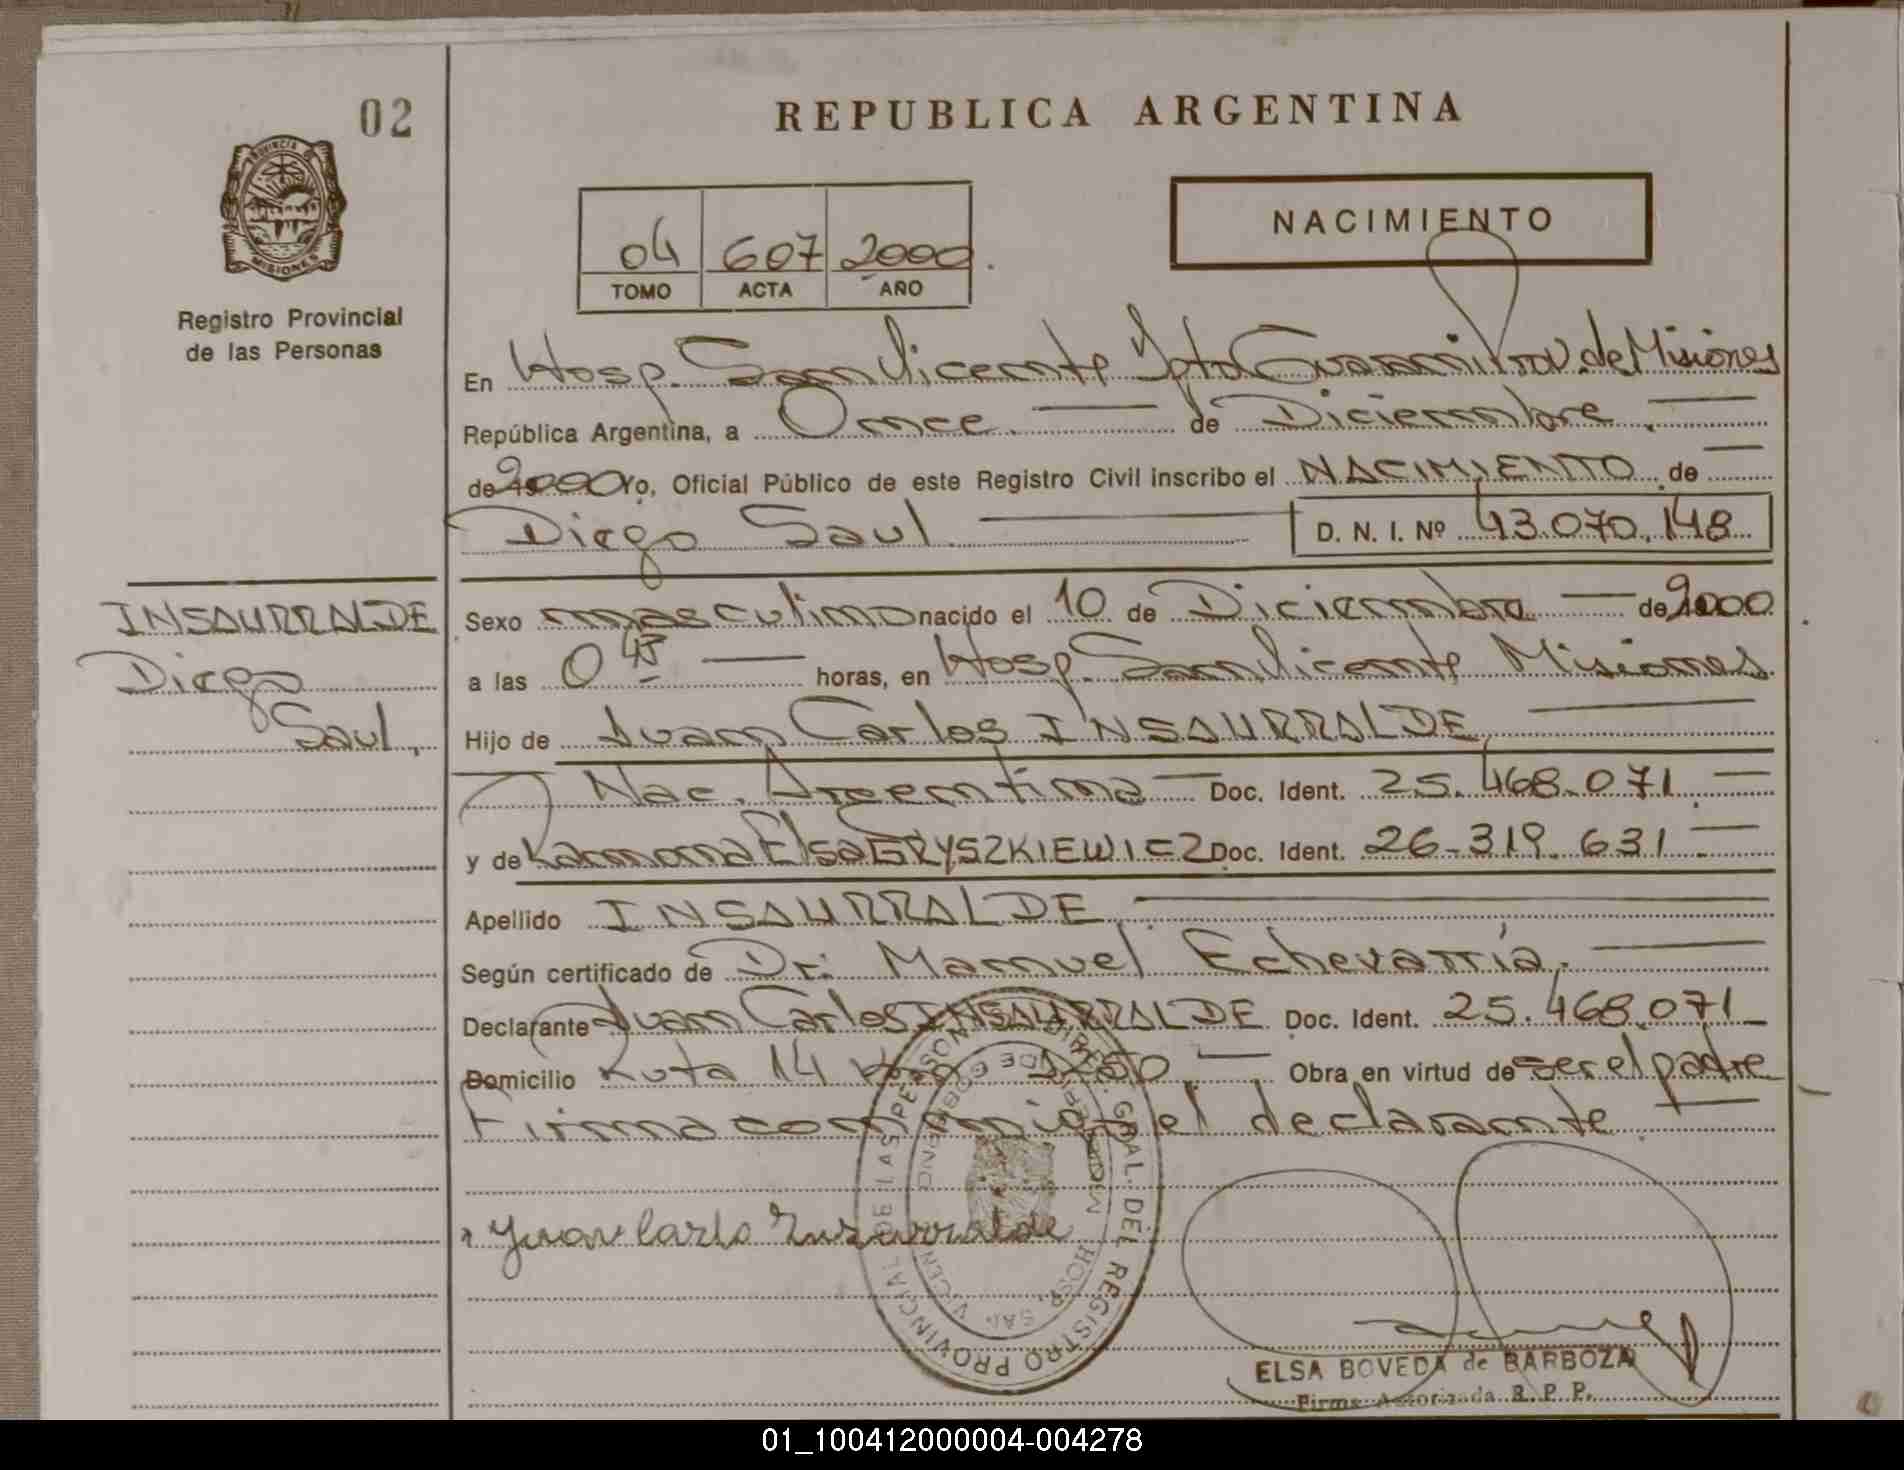 02
PROVINCIA DE
MISIONES
Registro Provincial
de las Personas
INSAURRALDE
Diego
Saul,
REPUBLICA ARGENTINA
04 607 2000
TOMO ACTA AÑO
NACIMIENTO
En Hosp. San Vicente Dpto Guarani Prov. de Misiones
República Argentina, a Once de Diciembre
de 2000 Yo, Oficial Público de este Registro Civil inscribo el NACIMIENTO de
Diego Saul D. N. I. Nº 43.070.148
Sexo masculino nacido el 10 de Diciembre de 2000
a las 0 45 horas, en Hosp. San Vicente Misiones.
Hijo de Juan Carlos INSAURRALDE,
Nac. Argentina Doc. Ident. 25.468.071
y de Ramona Elsa GRYSZKIEWICZ Doc. Ident. 26-319.631
Apellido INSAURRALDE
Según certificado de Dr. Manuel Echevarría,
Declarante Juan Carlos INSAURRALDE Doc. Ident. 25.468.071
Domicilio Ruta 14 Obra en virtud de ser el padre
Firma conmigo el declarante.
Juan Carlo Inzurralde
REGISTRO PROVINCIAL DE LAS PERSON
GRAL. DEL
HOSP. SAN VICEN
ELSA BOVEDA de BARBOZA
Firma Autorizada R. P. P.
01_100412000004-004278